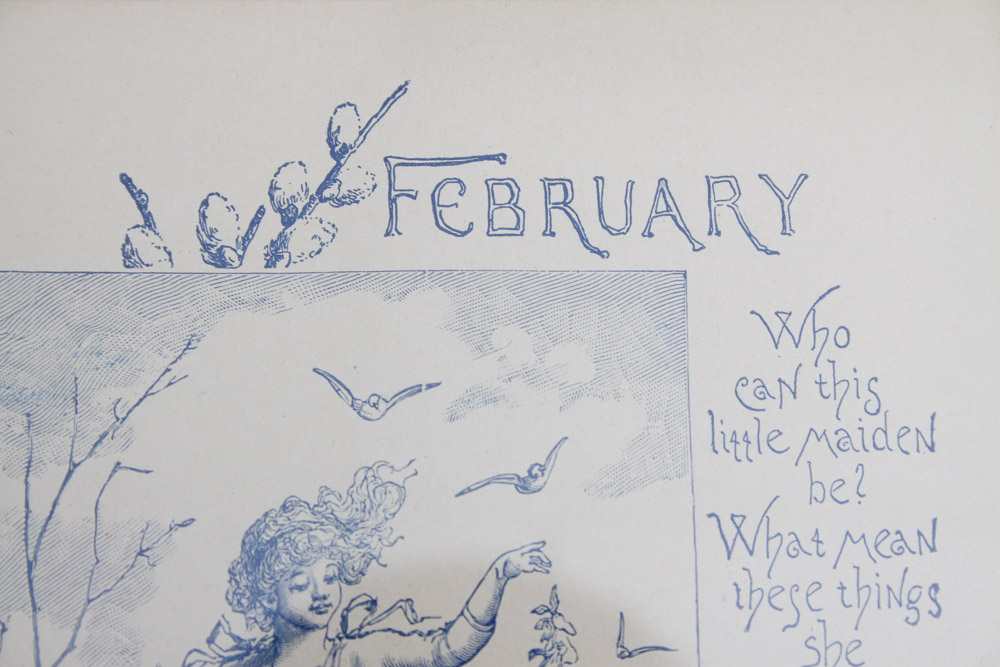 FEBRUARY
Who
can this
little maiden
be?
What mean
these things
she